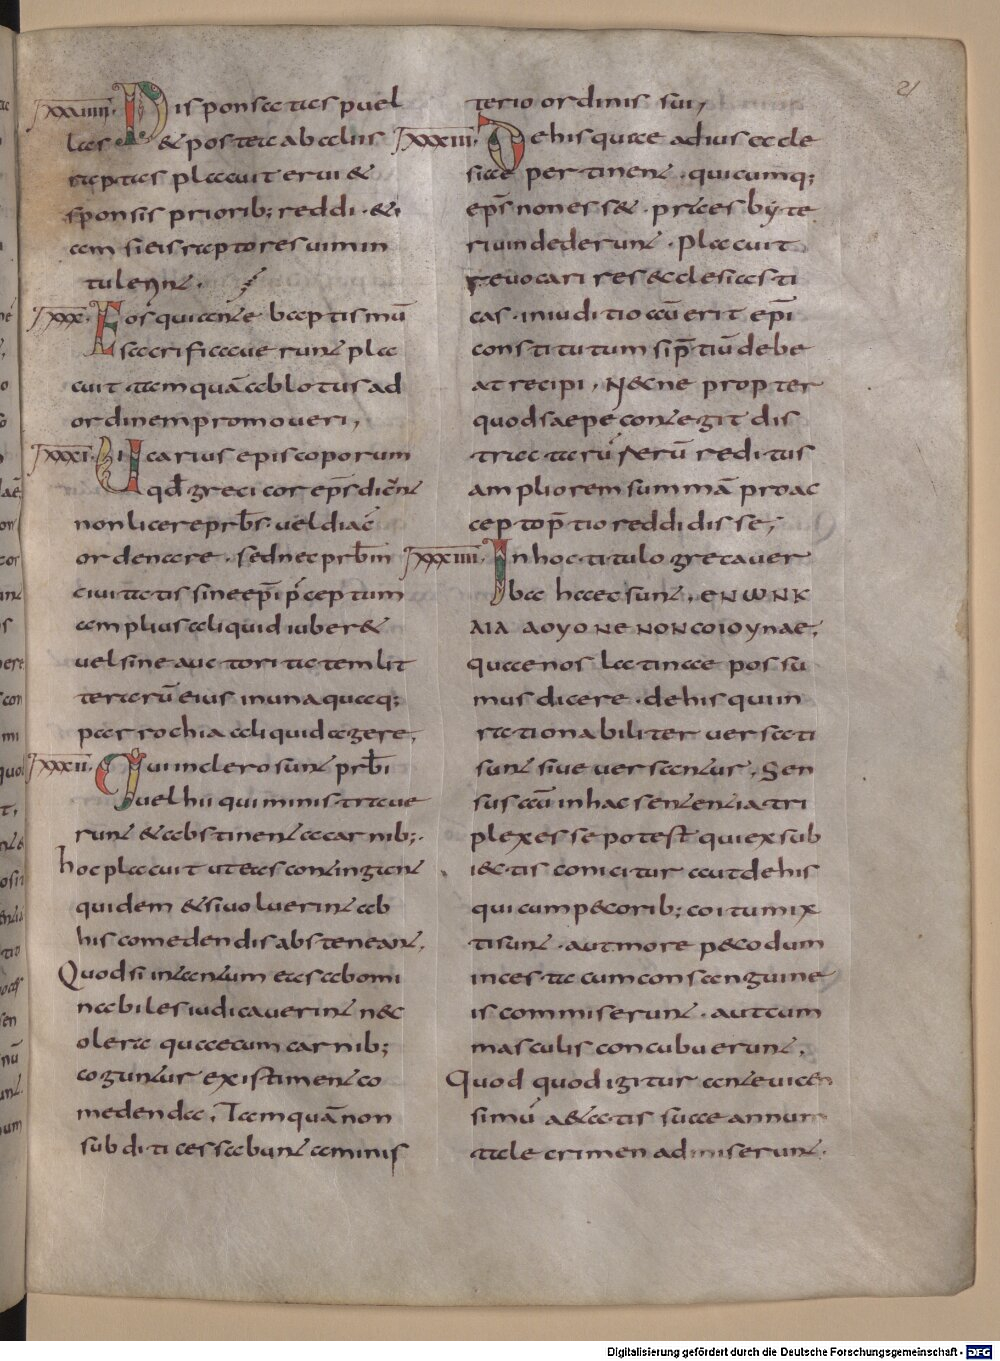 21
XXXVIIII. Disponsatas puel
las & postea ab aliis
raptas placuit erui &
sponsis priorib; reddi · &i
am si eis raptores uim in
tulerint.
XXX. Eos qui ante baptismū
sacrificauerunt plac
cuit tamquā ablotus ad
ordinem promoueri,
XXXI. Uicarius episcoporum
qđ greci corep̄s dicūnt
non licere prb̄s. uel diac̄
ordenare. sed nec prb̄m
ciuitatis sine ep̄i p̄ceptum
amplius aliquid iuber&
uel sine auctoritatem lit
terarū eius in unaquaq;
parrochia aliquid agere,
XXXII. Qui in clero sunt prb̄i
uel hii qui ministraue
runt & abstinent a carnib;
hoc placuit ut eas contingant
quidem & si uoluerint ab
his comedendis absteneant,
Quod si in tantum eas abomi
nabiles iudicauerint nec
olera quae cum carnib;
coguntur existiment co
medenda, Tamquā non
subditi cessabunt a minis
terio ordinis sui,
XXXIII. De his quae ad ius eccle
siae pertinent. quicumq;
ep̄s non ess&. pr̄ces byte
ri uindederunt. Placuit
reuocari res ecclesiasti
cas. in iuditio aū erit ep̄i
constitutum si p̄tiū debe
at recipi, Necne propter
quod saepe contegit dis
tractarū rerū reditus
ampliorem summā proac
cepto p̄tio reddidisse;
XXXIIII. In hoc titulo greca uer
ba haec sunt, ENωNK
AIA AOYONENONCOIOYNAE,
quae nos latinae possu
mus dicere. de his qui in
rationabiliter uersati
sunt siue uersantur, Sen
sus aū in hac sententia tri
plex esse potest qui ex sub
iectis conicitur aut de his
qui cum pecorib; coitu mix
ti sunt. aut more pecodum
incesta cum consanguine
is commiserunt. aut cum
masculis concubuerunt,
Quod quod igitur ante uicen
simū aetatis suae annum
tale crimen admiserunt.
Digitalisierung gefördert durch die Deutsche Forschungsgemeinschaft - DFG